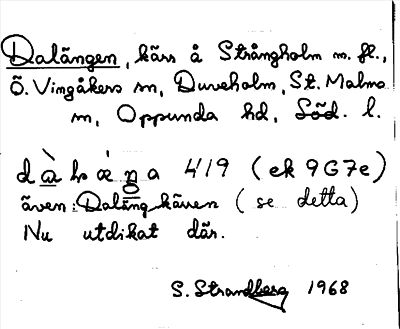 Dalängen, kärr å Strångholm m. fl.,
Ö. Vingåkers sn, Dureholm, St. Malms
sn, Oppunda hd, Söd. l.
419 (ek 9G7e)
även: Daläng kärren (se detta)
Nu utdikat där.
S. Strandberg 1968